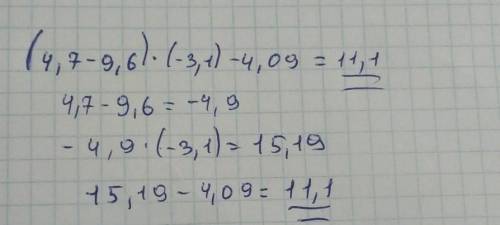 (4,7-9,6)·(-3,1)-4,09 = 11,1
4,7-9,6=-4,9
-4,9·(-3,1)=15,19
15,19-4,09=11,1